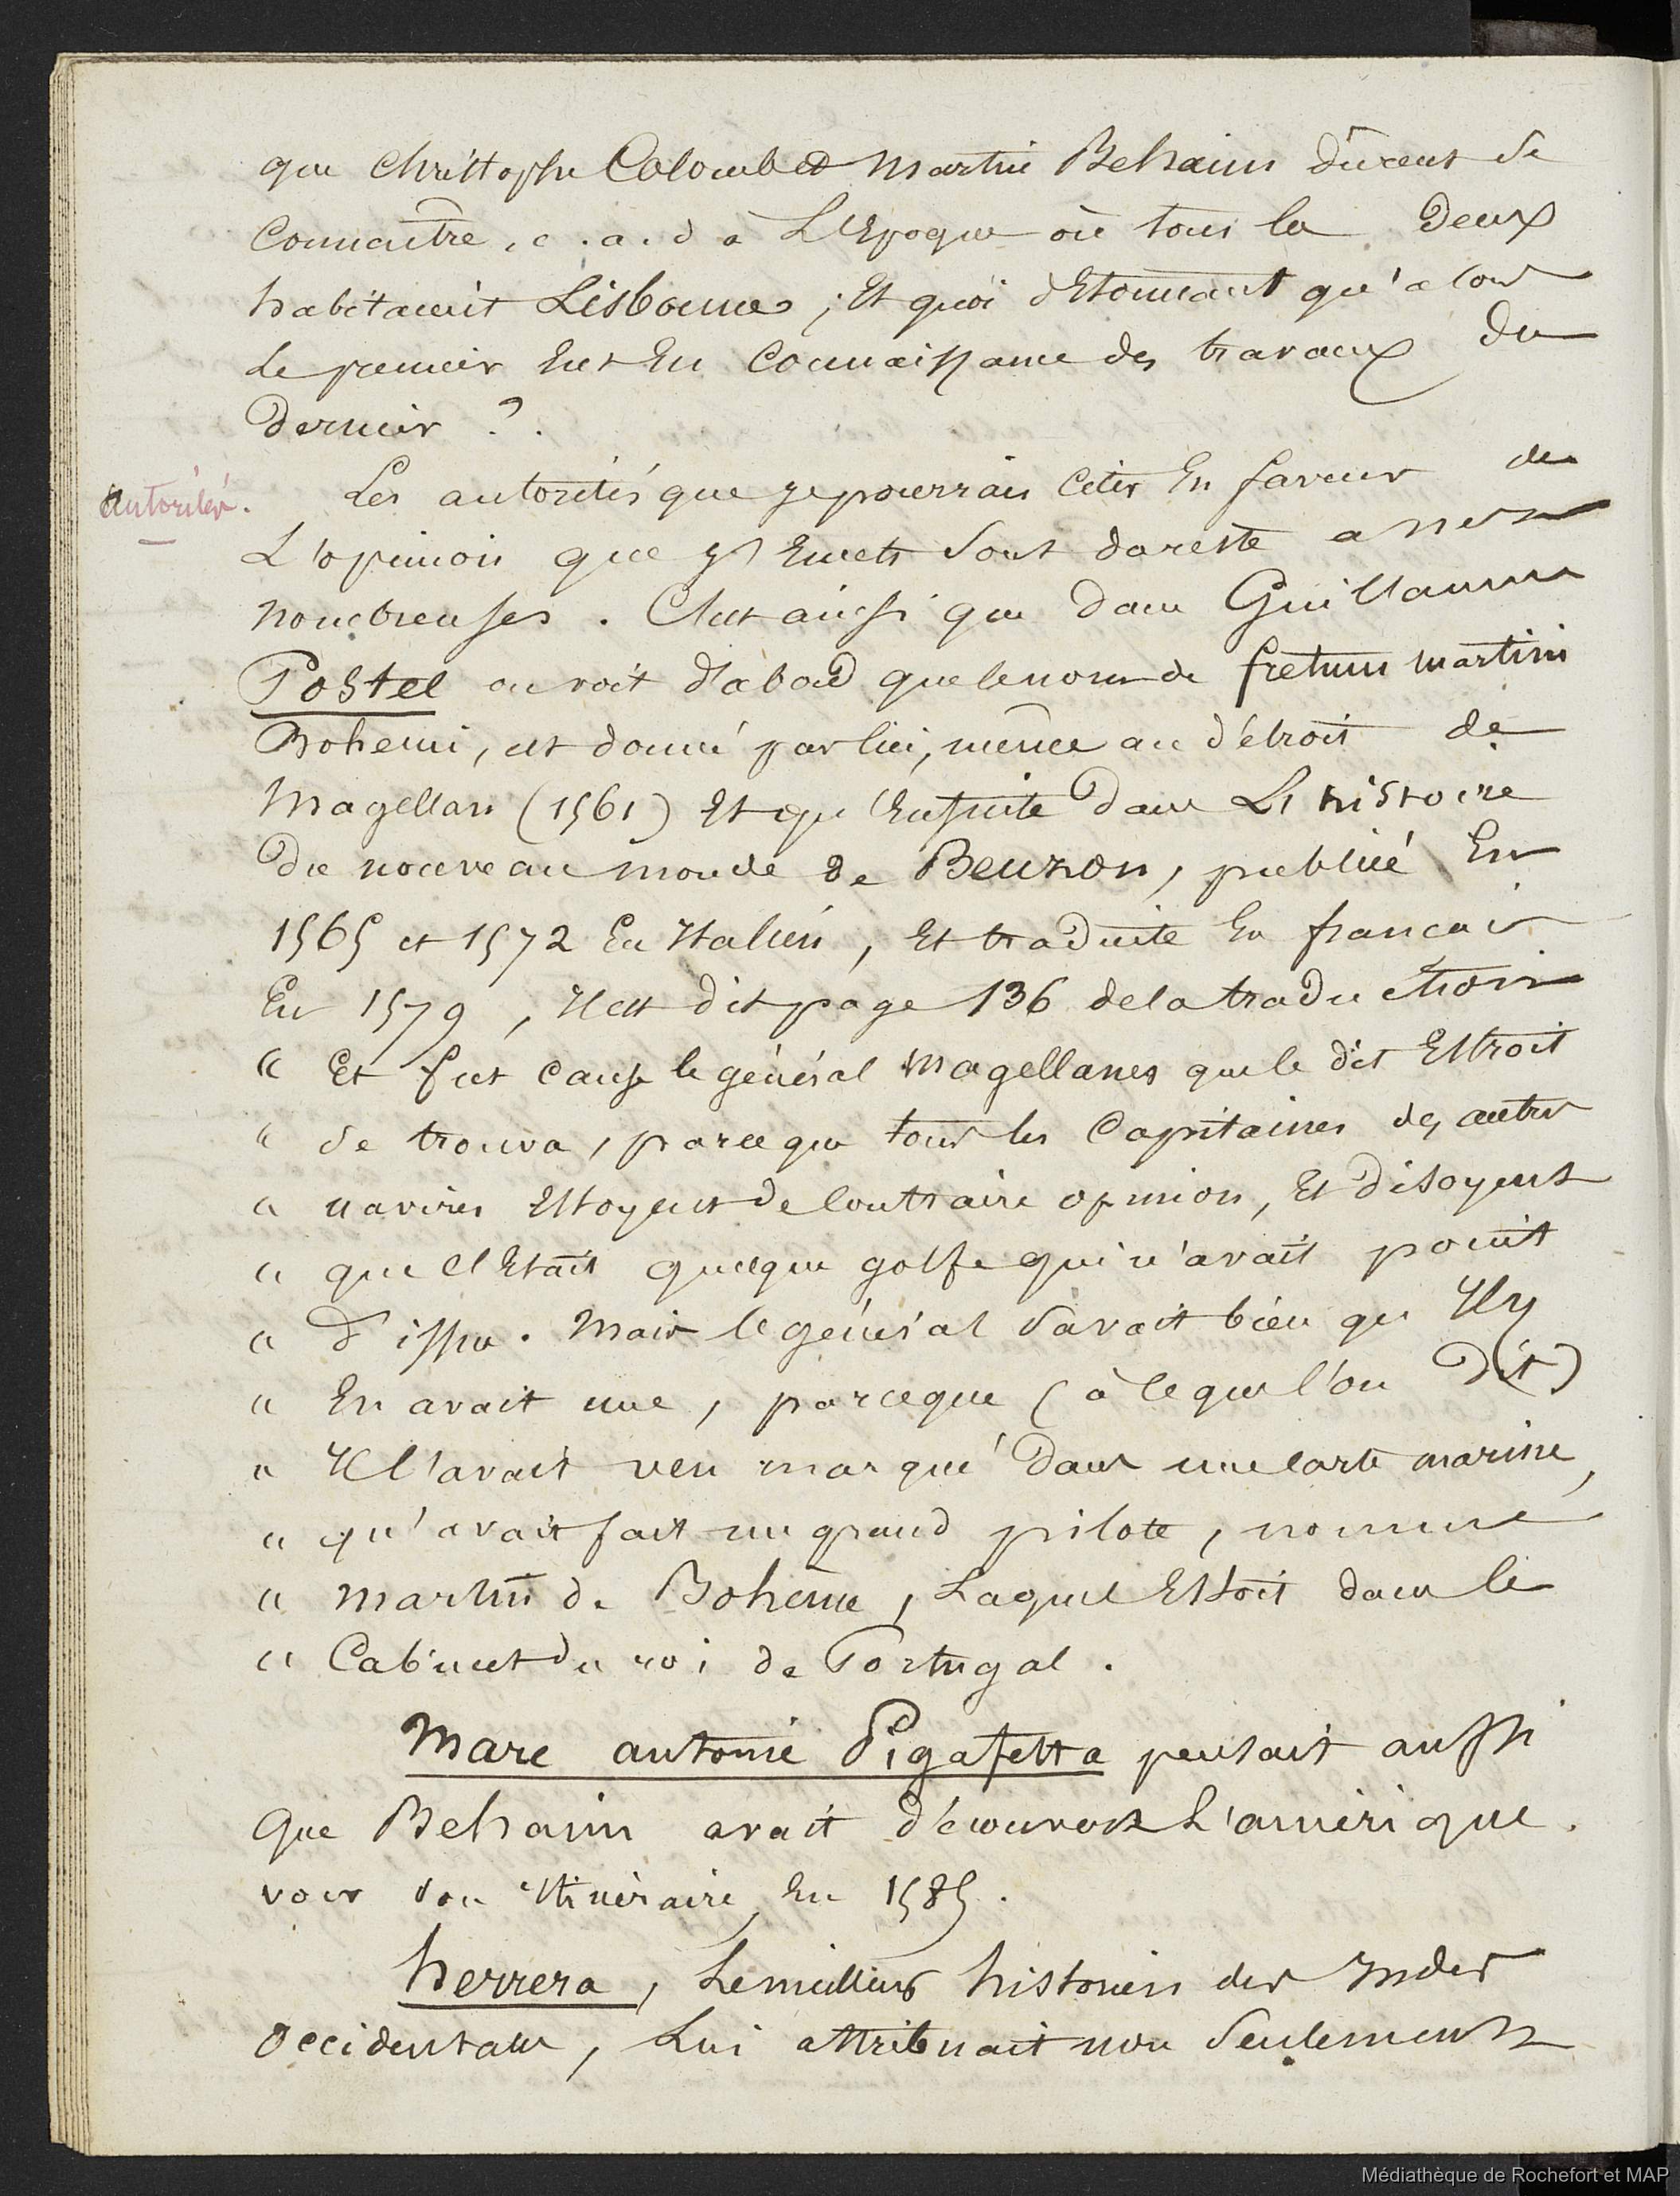 que Christtophe Colomb et Martin Behaim dûrent se
Connaître, c.a.d a L'Epoque où tous les Deux
habitaient Lisbonne ; Et quoi d'Etonnant qu'alors
Le premier Eut En Connaissance des travaux du
Dernier ?.
Autorités.
Les autorités que je pourrais Citer En faveur de
L'opinion que j'Emets sont dureste assez
nombreuses. C'est ainsi que dans Guillaume
Postel on voit d'abord que le nom de fretum martini
Bohemi, est donné par lui, même au détroit de
Magellan (1561) Et qu'Ensuite Dans L'histoire
Du nouveau monde de Benzon, publié En
1565 et 1572 En Italien, Et traduite En francais
En 1579, Il est dit page 136 de la traduction
" Et fut cause le général Magellanes que le dit Estroit
" se trouva, parceque tous les Capitaines des autres
" navires Estoyent de Contraire opinion, Et disoyent
" que c'Etait quelque golfe qui n'avait point
" d'issue. Mais le général savait bien qu'Il y
" En avait une, parceque (à ce que l'on Dit)
" Il l'avait veu marqué Dans une carte marine,
" qu'avait fait un grand pilote, nommé
" martin de Bohème, Laquel Estoit dans le
" Cabinet du roi de Portugal.
Marc antonie Pigafetta pensait aussi
Que Behaim avait découvert L'amérique.
voir son Itinéraire, En 1585.
herrera, Le meilleur historien des Indes
occidentales, Lui attribuait non seulement
Médiathèque de Rochefort et MAP